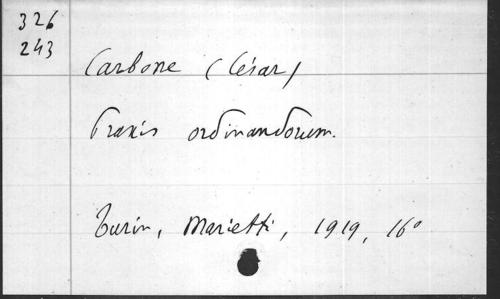 326
243
Carbone (César)
Praxis ordinandorum.
Turin, Marietti, 1919, 16°